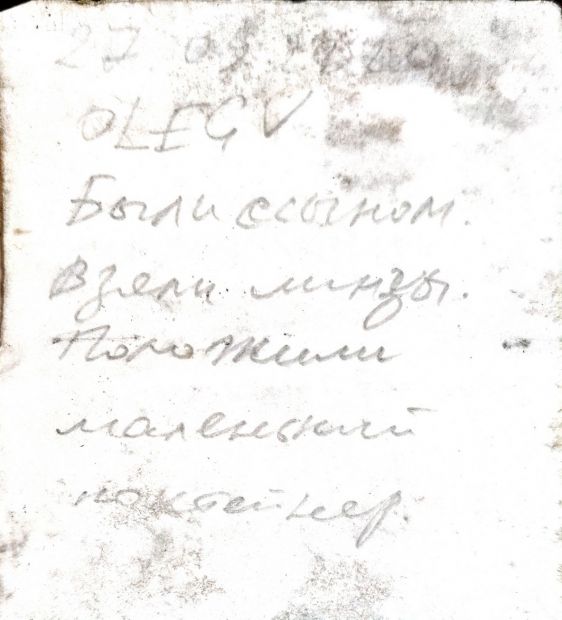 27 05 2020
OLEGV
Были с сыном.
Взяли линзы.
Положили
маленький
контейнер.